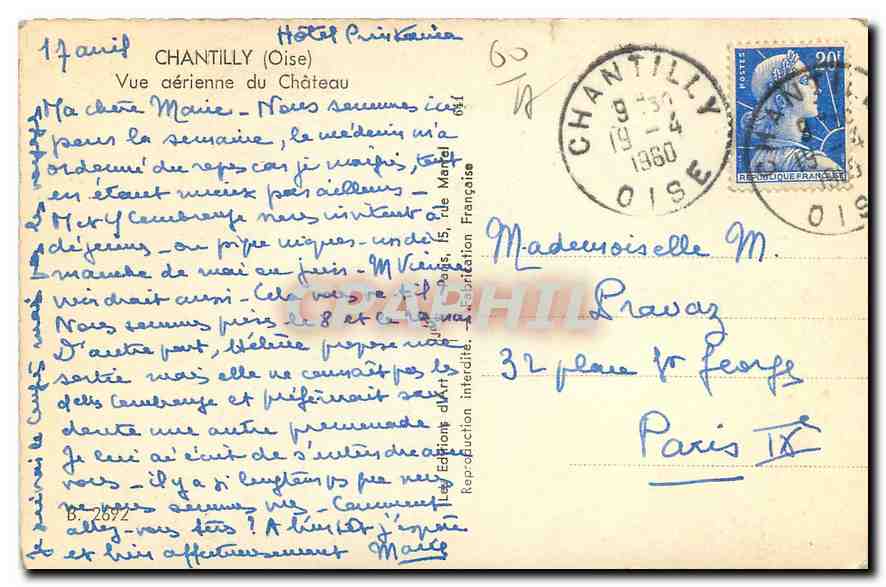 17 avril
Hôtel
CHANTILLY (Oise)
Vue aérienne du Château
Ma chère Marie - Nous sommes ici
pour la semaine, le médecin m'a
ordonné du repos car je maigris, tout
en étant mieux par ailleurs -
M et Mme nous invitent à
déjeuner - ou pique niquer - un di
manche de mai ou juin - M
viendrait aussi - Cela vous va-t-il
Nous sommes pris le 8 et le mai
D'autre part, Hélène propose une
sortie mais elle ne connaît pas les
et préférerait sans
doute une autre promenade
Je lui ai écrit de s'entendre avec
vous - il y a si longtemps que nous
ne nous sommes vus - Comment
allez-vous tous ? A bientôt j'espère
et bien affectueusement
B. 2692
Les Editions d'Art Paris, 15, rue Martel 641
Reproduction interdite. Fabrication Française
CPAPHIL
60
CHANTILLY
19 - 4
1960
OISE
POSTES
20F
REPUBLIQUE FRANCAISE
CHANTILLY
OISE
Mademoiselle M.
Pravaz
32 place St Georges
Paris IXe